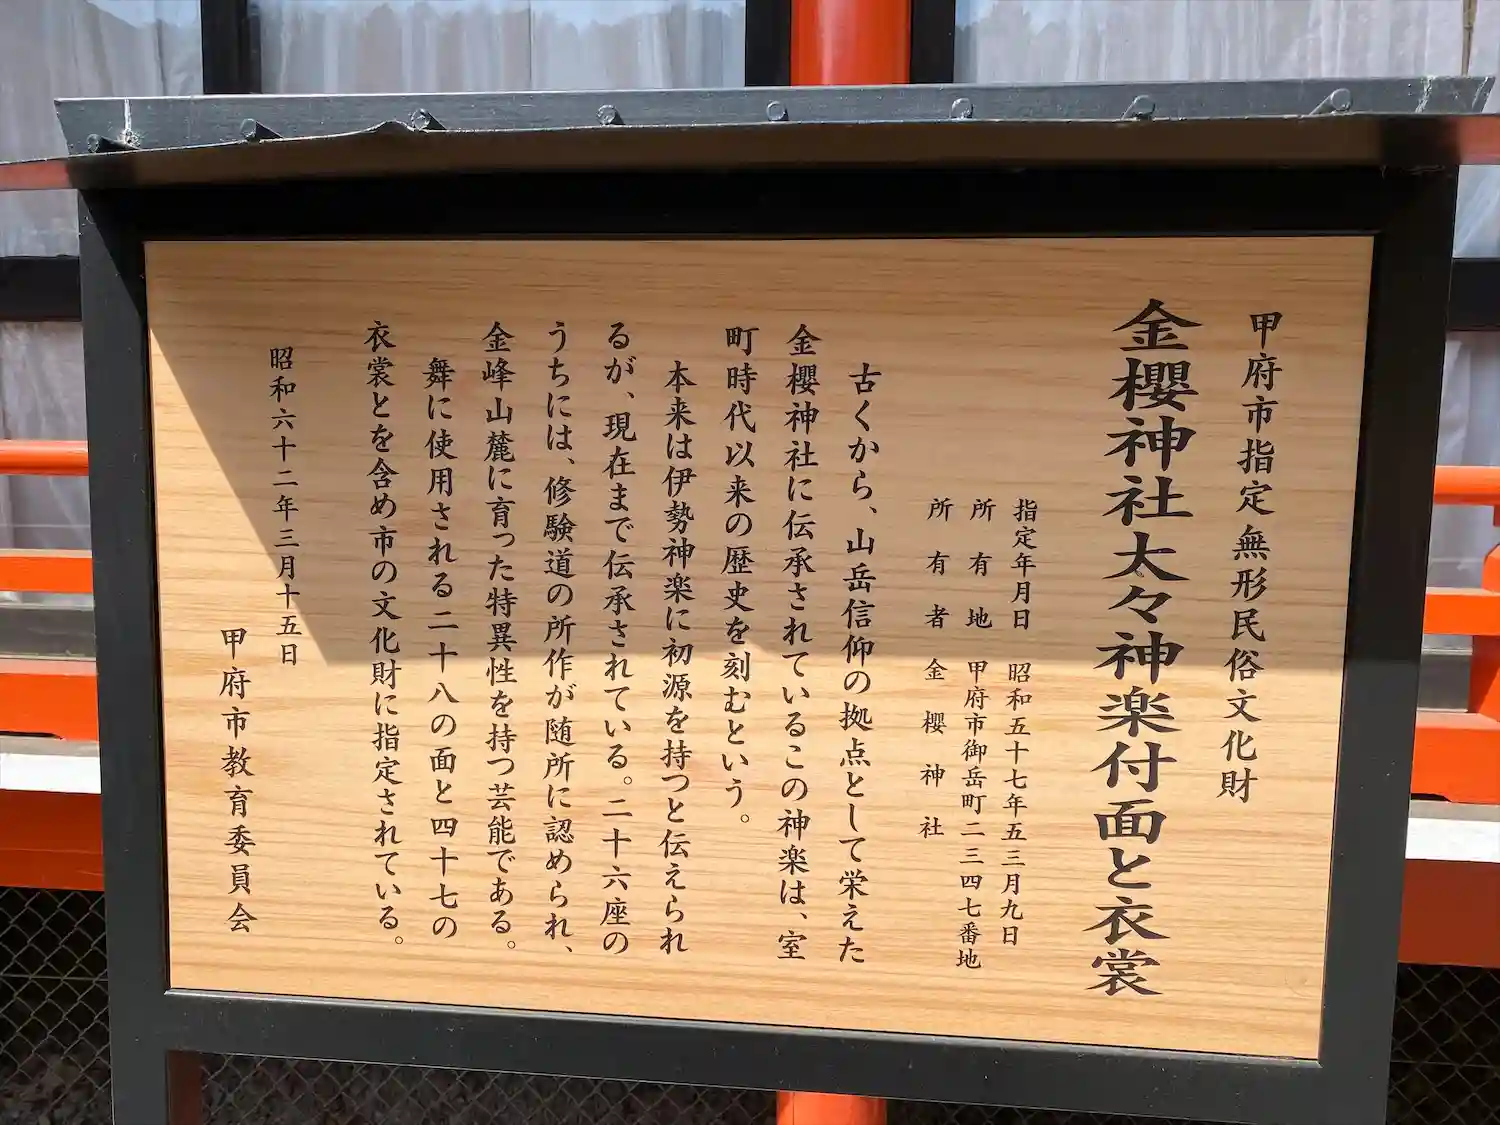 甲府市指定無形民俗文化財
金櫻神社太々神楽付面と衣裳
指定年月日　昭和五十七年五三月九日
所有地　甲府市御岳町二三四七番地
所有者　金櫻神社
古くから、山岳信仰の拠点として栄えた
金櫻神社に伝承されているこの神楽は、室
町時代以来の歴史を刻むという。
本来は伊勢神楽に初源を持つと伝えられ
るが、現在まで伝承されている。二十六座の
うちには、修験道の所作が随所に認められ、
金峰山麓に育った特異性を持つ芸能である。
舞に使用される二十八の面と四十七の
衣裳とを含め市の文化財に指定されている。
昭和六十二年三月十五日
甲府市教育委員会